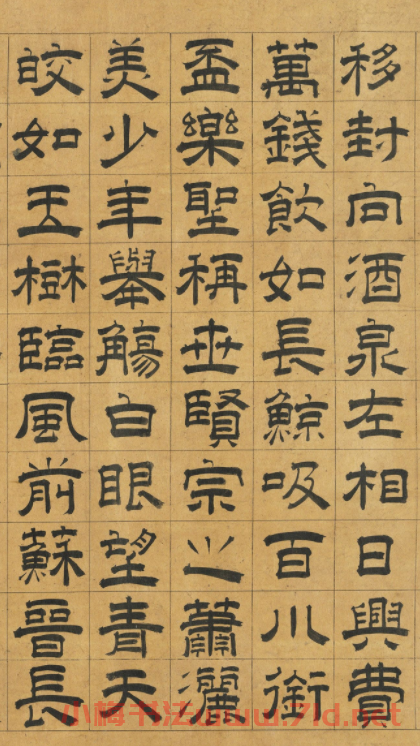 移封向酒泉左相日興費
萬錢飲如長鯨吸百川銜
盃樂聖稱世賢宗之蕭灑
美少年舉觴白眼望青天
皎如玉樹臨風前蘇晉長
小梅书法www.7ld.net